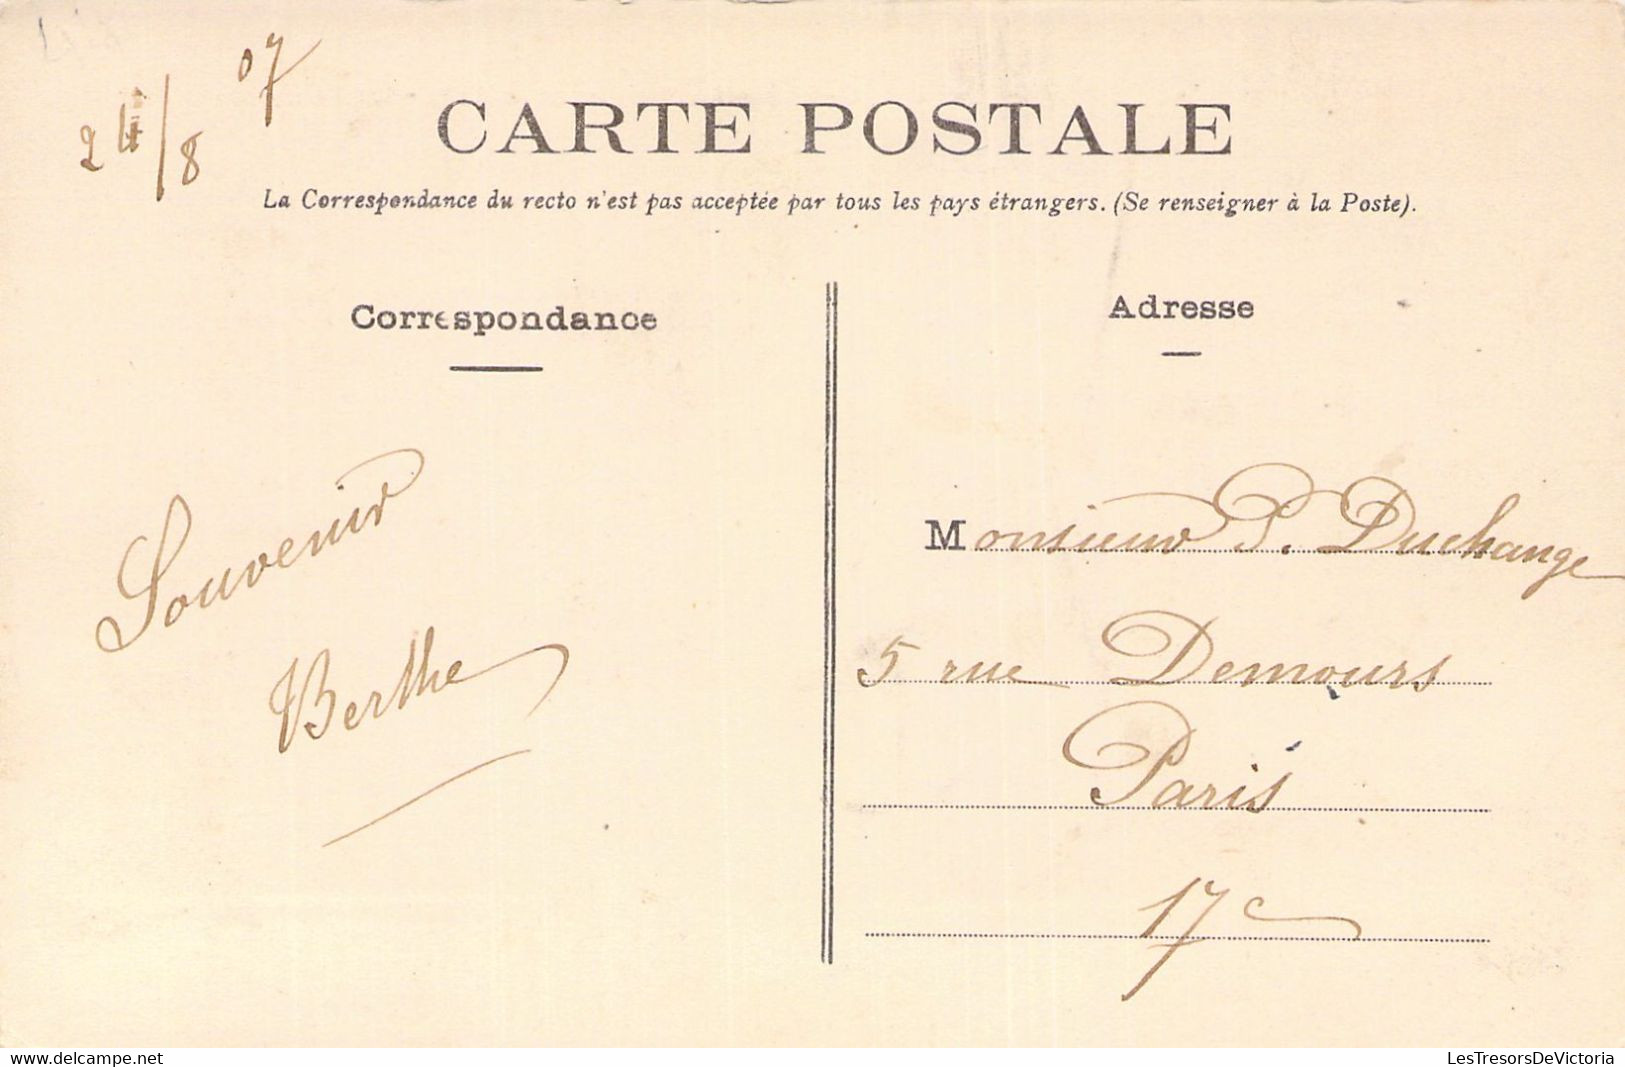 24/8 07
CARTE POSTALE
La Correspondance du recto n'est pas acceptée par tous les pays étrangers. (Se renseigner à la Poste).
Correspondance
Souvenir
Berthe
Adresse
Monsieur P. Duchange
5 rue Demours
Paris
17e
www.delcampe.net
LesTresorsDeVictoria